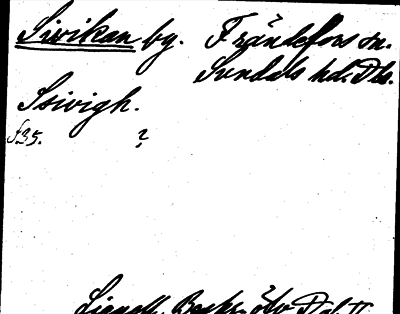 Sivikan by. Frändefors sn.
Sundals hd. Dls.
Ssivigh.
f.35. ?
Lignell, Beskr. öfv. Dal II